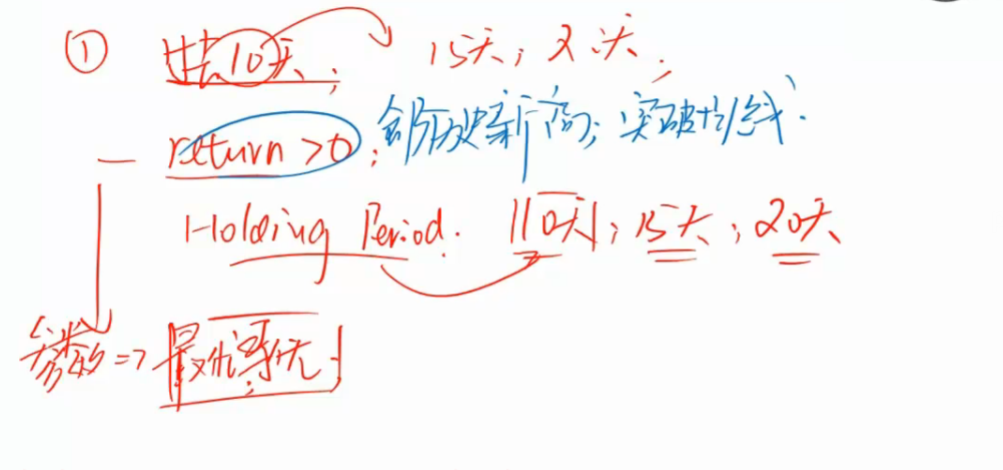 ① 过去10天; 15天; 2天;
return >0; 创历史新高; 突破均线.
Holding Period. 10天; 15天; 20天
参数 => 最优寻优;